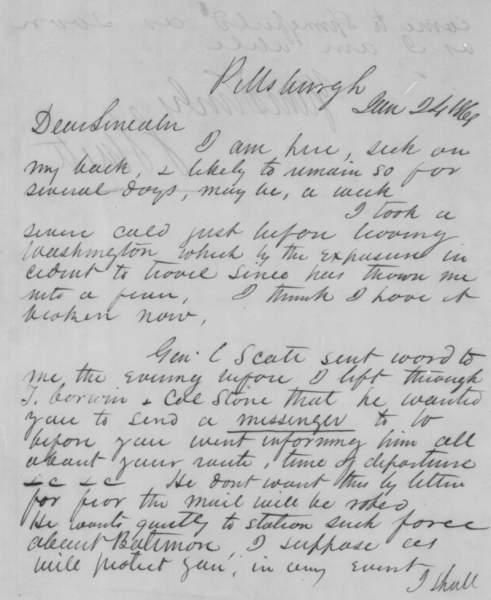 Pittsburgh
Jan 24 1861
Dear Lincoln
I am here, sick on
my back, & likely to remain so for
several days, may be, a week
I took a
severe cold just before leaving
Washington which by the exposure in
cident to travel since has thrown me
into a fever, I think I have it
broken now,
Genl Scott sent word to
me the evening before I left through
T. Corwin & Col Stone that he wanted
you to send a messenger to
before you went informing him all
about your route, time of departure
&c &c He dont want this by letter
for fear the mail will be robed
He wants quietly to station such force
about Baltimore, I suppose as
will protect you, in any event
I shall